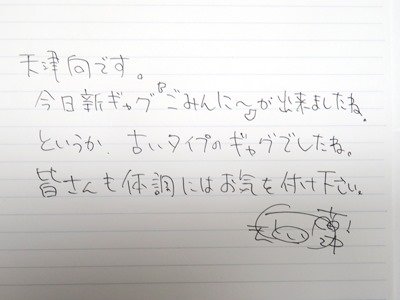 天津向です。
今日新ギャグ"ごみんに〜"が出来ましたね。
というか、古いタイプのギャグでしたね。
皆さんも体調にはお気を付け下さい。